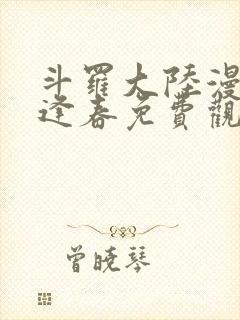 斗羅大陸漫
逢春免費觀
曾曉琴